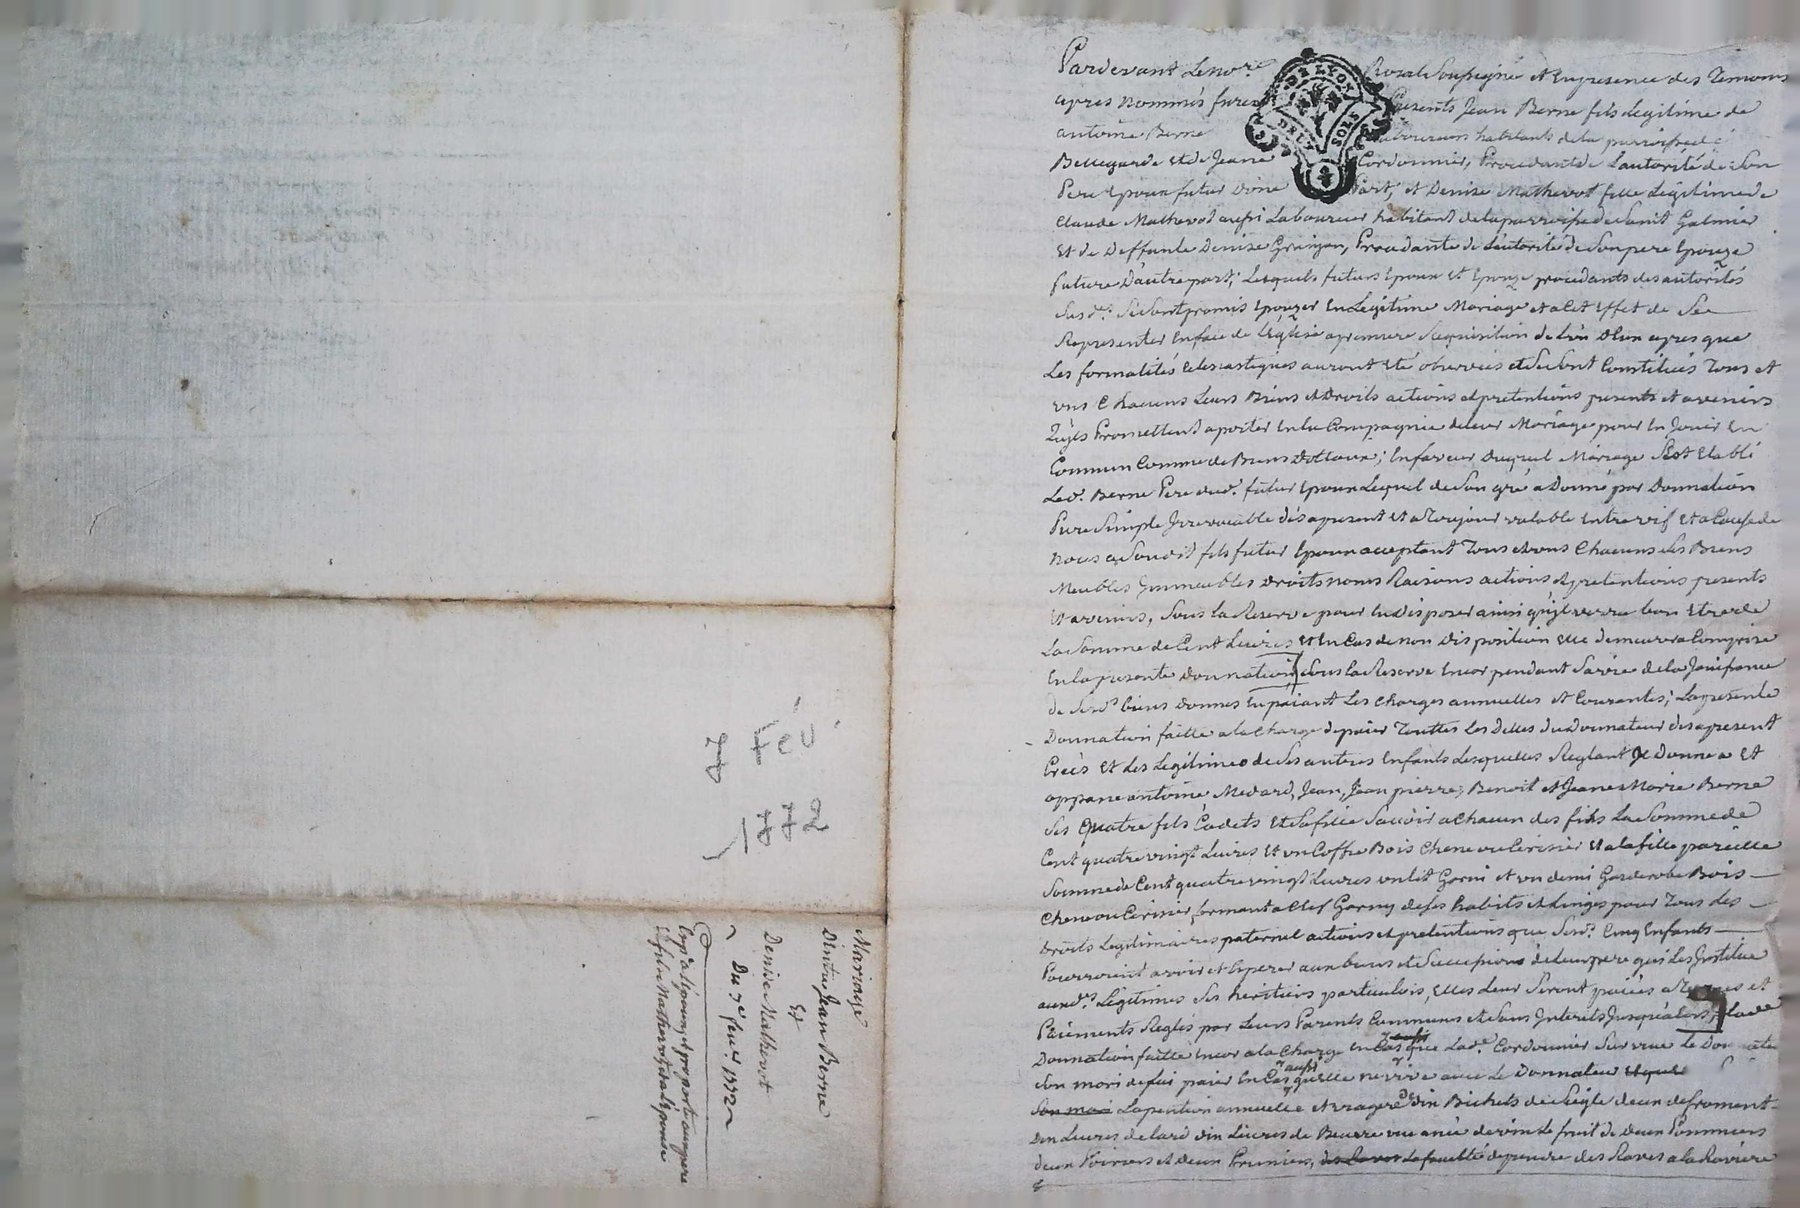 7 Fév
1772
Mariage
D'entre Jean Berne
Et
Denise Mathevot
Du 7e fevr. 1772
Pardevant Le nore Royal Soussigné et En presence des Temoins
apres nommés furent Presents Jean Berne fils Legitime de
antoine Berne Laboureur habitants de la parroisse de
Bellegarde et de Jeane Cordonnier, Procedant de L'autorité de Son
Pere Epoux futur d'une Part, et Denise Mathevot fille Legitime de
Claude Mathevot aussi Laboureur habitant de la parroisse de Saint Galmier
Et de Deffunte Denise Grangon, Procedante de L'autorité de Son pere Epouze
future D'autre part; Lesquels futurs Epoux et Epouze procedants des autorités
Susdes. Se Sont promis Epouzer En Legitime Mariage et a Cet Effet de Se
Representer En face de l'Eglise a premiere Requisition de L'un d'Eux apres que
Les formalités Eclesiastiques auront Eté observées et Se Sont Constitués Tous et
uns Chacuns Leurs Biens et Droits actions et pretentions presents et avenirs
qu'ils Promettent aporter En la Compagnie de leur Mariage pour En Jouir En
Commun Comme de Biens Dottaux; En faveur Duquel Mariage S'est Etabli
Led. Berne Pere dud. futur Epoux Lequel de Son gré a Donné par Donnation
Pure Simple Irrevocable dés apresent Et a Toujour valable Entre vif Et a Cause de
Noces au Susdit fils futur Epoux acceptant Tous et uns Chacuns Ses Biens
Meubles Immeubles Droits noms Raisons actions et pretentions presents
Et avenirs, Sous la Reserve pour En disposer ainsi qu'il verra bon Etre de
La Somme de Cent Livres et En Cas de non disposition Elle demeurera Comprise
En la presente donnation Sous la Reserve Encor pendant Sa vie de la Jouissance
de Sesds biens donnés En païant Les Charges annuelles et Courantes; La presente
Donnation faitte a la charge de païer Touttes Les Dettes du Donnateur des apresent
Créés Et Les Legitimes de Ses autres Enfants Lesquelles Reglant Il Donne a Et
appane antoine Medard, Jean, Jean pierre, Benoit et Jeane Marie Berne
Ses quatre fils Cadets Et Sa fille Savoir a Chacun des fils La Somme de
Cent quatre vingt Livres Et un Coffre Bois Chene ou Cerisier Et a la fille pareille
Somme de Cent quatre vingt Livres un lit Garni et un demi Garderobe Bois
Chene ou Cerisier fermant a Clef Garny de Ses habits et Linges pour Tous Les
Droits Legitimaires paternel actions et pretentions que Sesd. Cinq Enfants
Pourroient avoir et Esperer aux biens et Succession de leur pere qui Les Institue
auxds. Legitimes Ses heritiers particuliers, Elles Leur Seront païées a Termes et
Paiements Reglés par Leurs Parents Communs et Sans Interets Jusqu'alors; Lade
Donnation faitte Encor a la Charge En Cas que Lade. Cordonnier Survive Le
Son mari de lui païer En Cas aussi qu'elle ne vive avec Le Donnateur
La pention annuelle et viagere dix Bichets de Seigle deux de froment
Dix Livres de lard dix Livres de Beurre une anée de vin Le fruit de deux Pommiers
deux Poiriers et deux Pruniers, de prendre des Raves a la Raviere